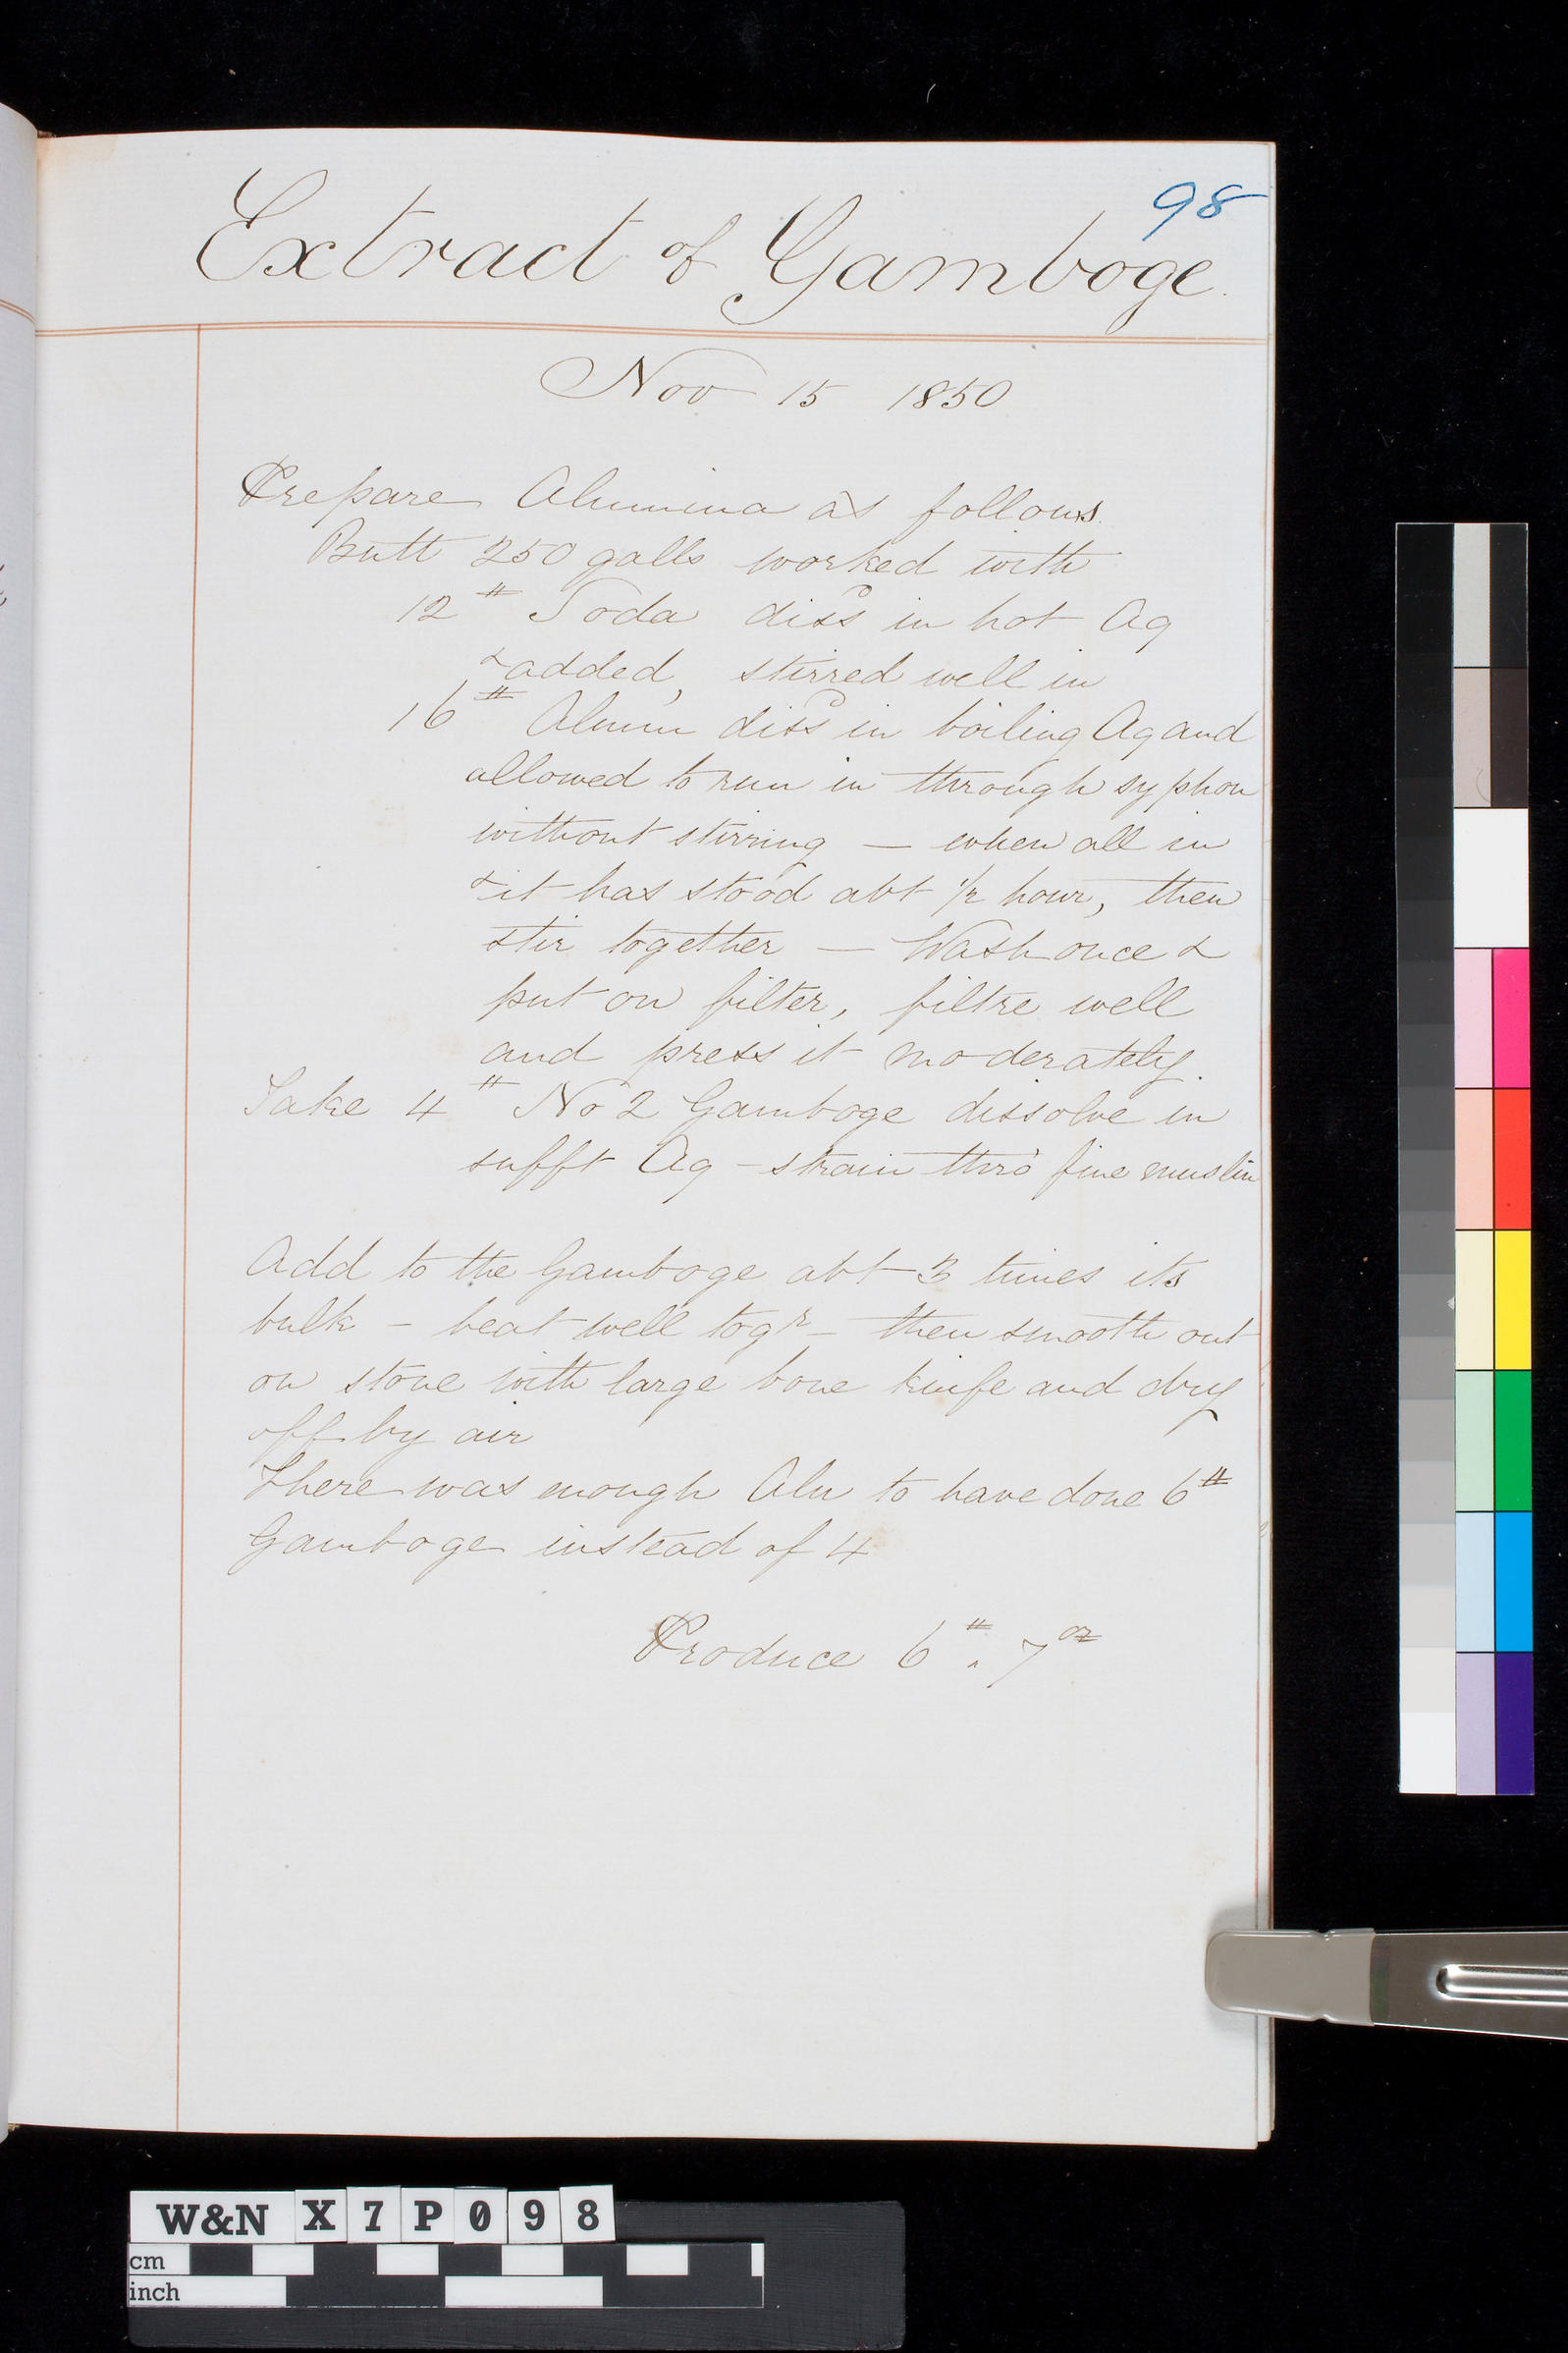 98
Extract of Gamboge.
Nov 15 1850
Prepare Alumina as follows.
Butt 250 galls worked with
12 # Soda diss^d in hot Aq
& added, stirred well in
16 # Alum diss^d in boiling Aq and
allowed to run in through syphon
without stirring — when all in
& it has stood abt 1/2 hour, then
stir together — Wash once &
put on filter, filtre well
and press it moderately.
Take 4 # No 2 Gamboge dissolve in
sufft Aq – strain thro' fine muslin
Add to the Gamboge abt 3 times its
bulk – beat well tog^r – then smooth out
on stone with large bone knife and dry
off by air
There was enough Alu to have done 6 #
Gamboge instead of 4
Produce 6 #. 7 oz
W&N X7P098
cm
inch